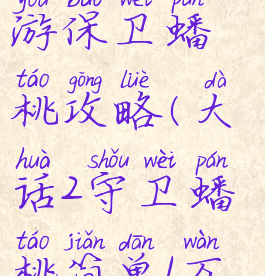 yóu bǎo wèi pán
游保卫蟠
táo gōng lüè dà
桃攻略(大
huà shǒu wèi pán
话2守卫蟠
táo jiǎn dān wàn
桃简单(万